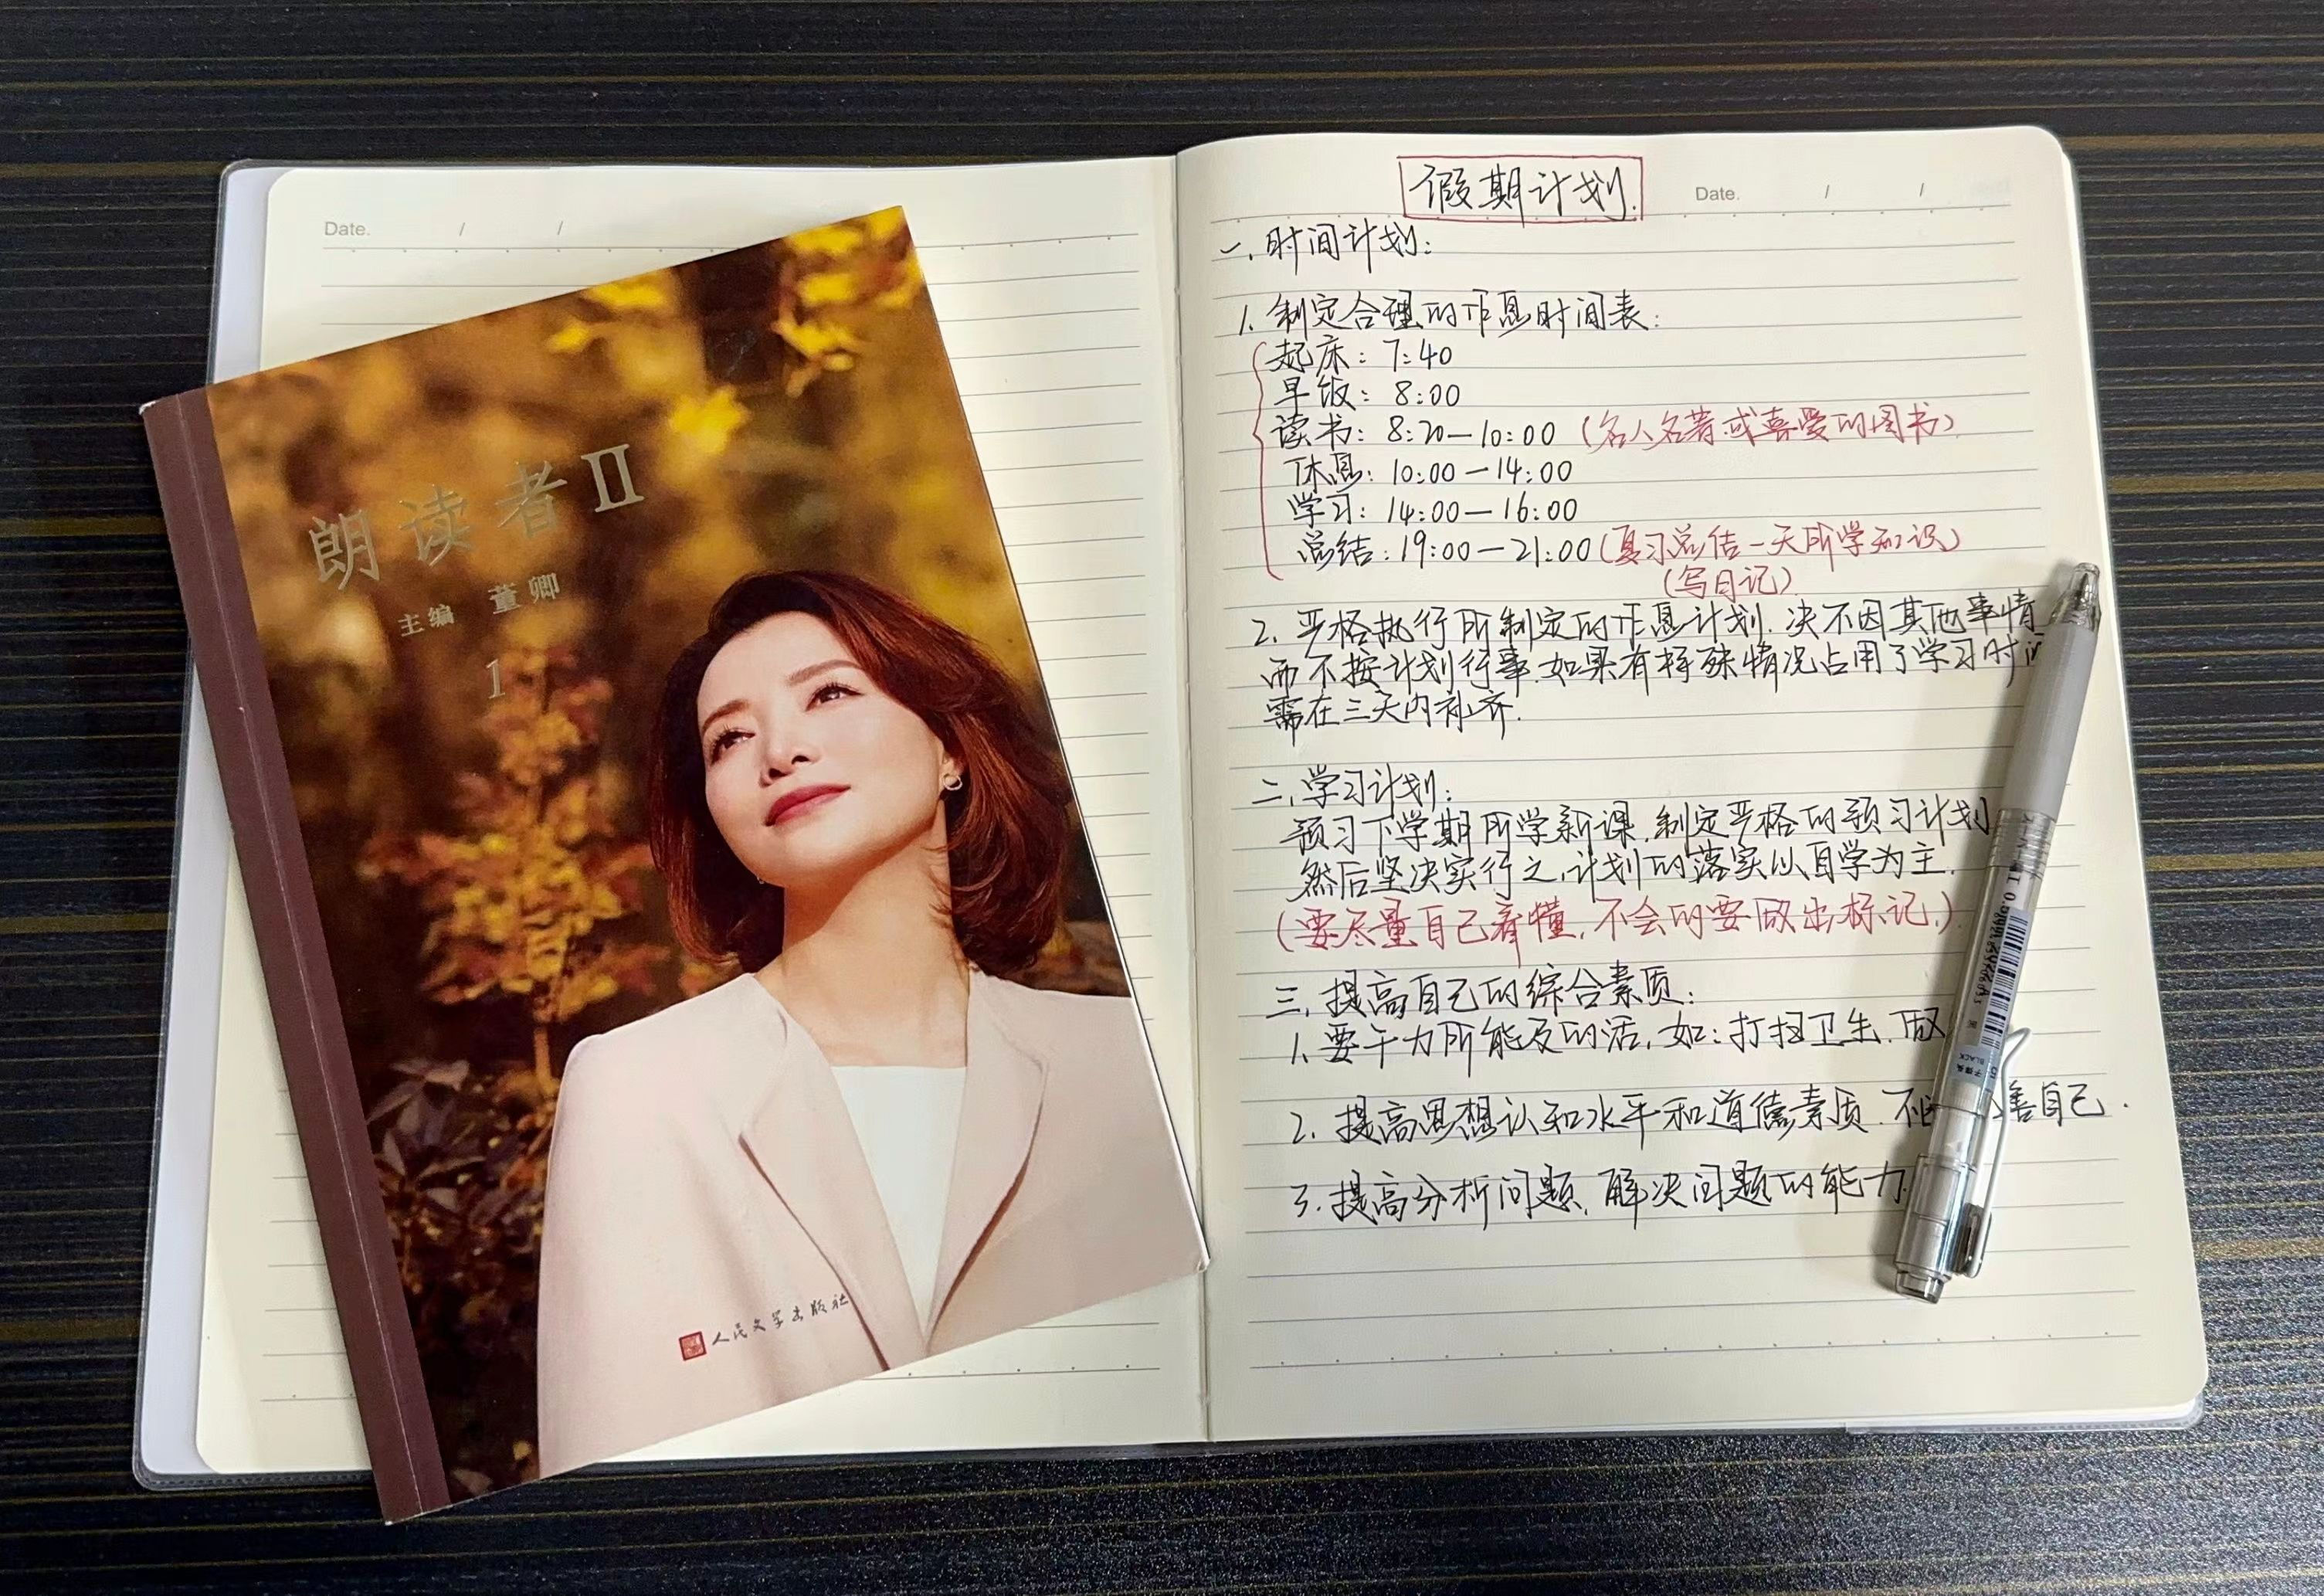 Date. / /
朗读者II
主编 董卿
1
人民文学出版社
假期计划.
Date. / /
一.时间计划:
1.制定合理的作息时间表:
起床: 7:40
早饭: 8:00
读书: 8:20—10:00 (名人名著或喜爱的图书)
休息: 10:00—14:00
学习: 14:00—16:00
总结: 19:00—21:00 (复习总结一天所学知识)
(写日记)
2.严格执行所制定的作息计划.决不因其他事情
而不按计划行事.如果有特殊情况占用了学习时
需在三天内补齐.
二.学习计划:
预习下学期所学新课.制定严格的预习计划
然后坚决实行之.计划的落实以自学为主.
(要尽量自己看懂.不会的要做出标记.)
三.提高自己的综合素质:
1.要干力所能及的活,如:打扫卫生.做
2.提高思想认和水平和道德素质.不 善自己.
3.提高分析问题.解决问题的能力.
BLACK